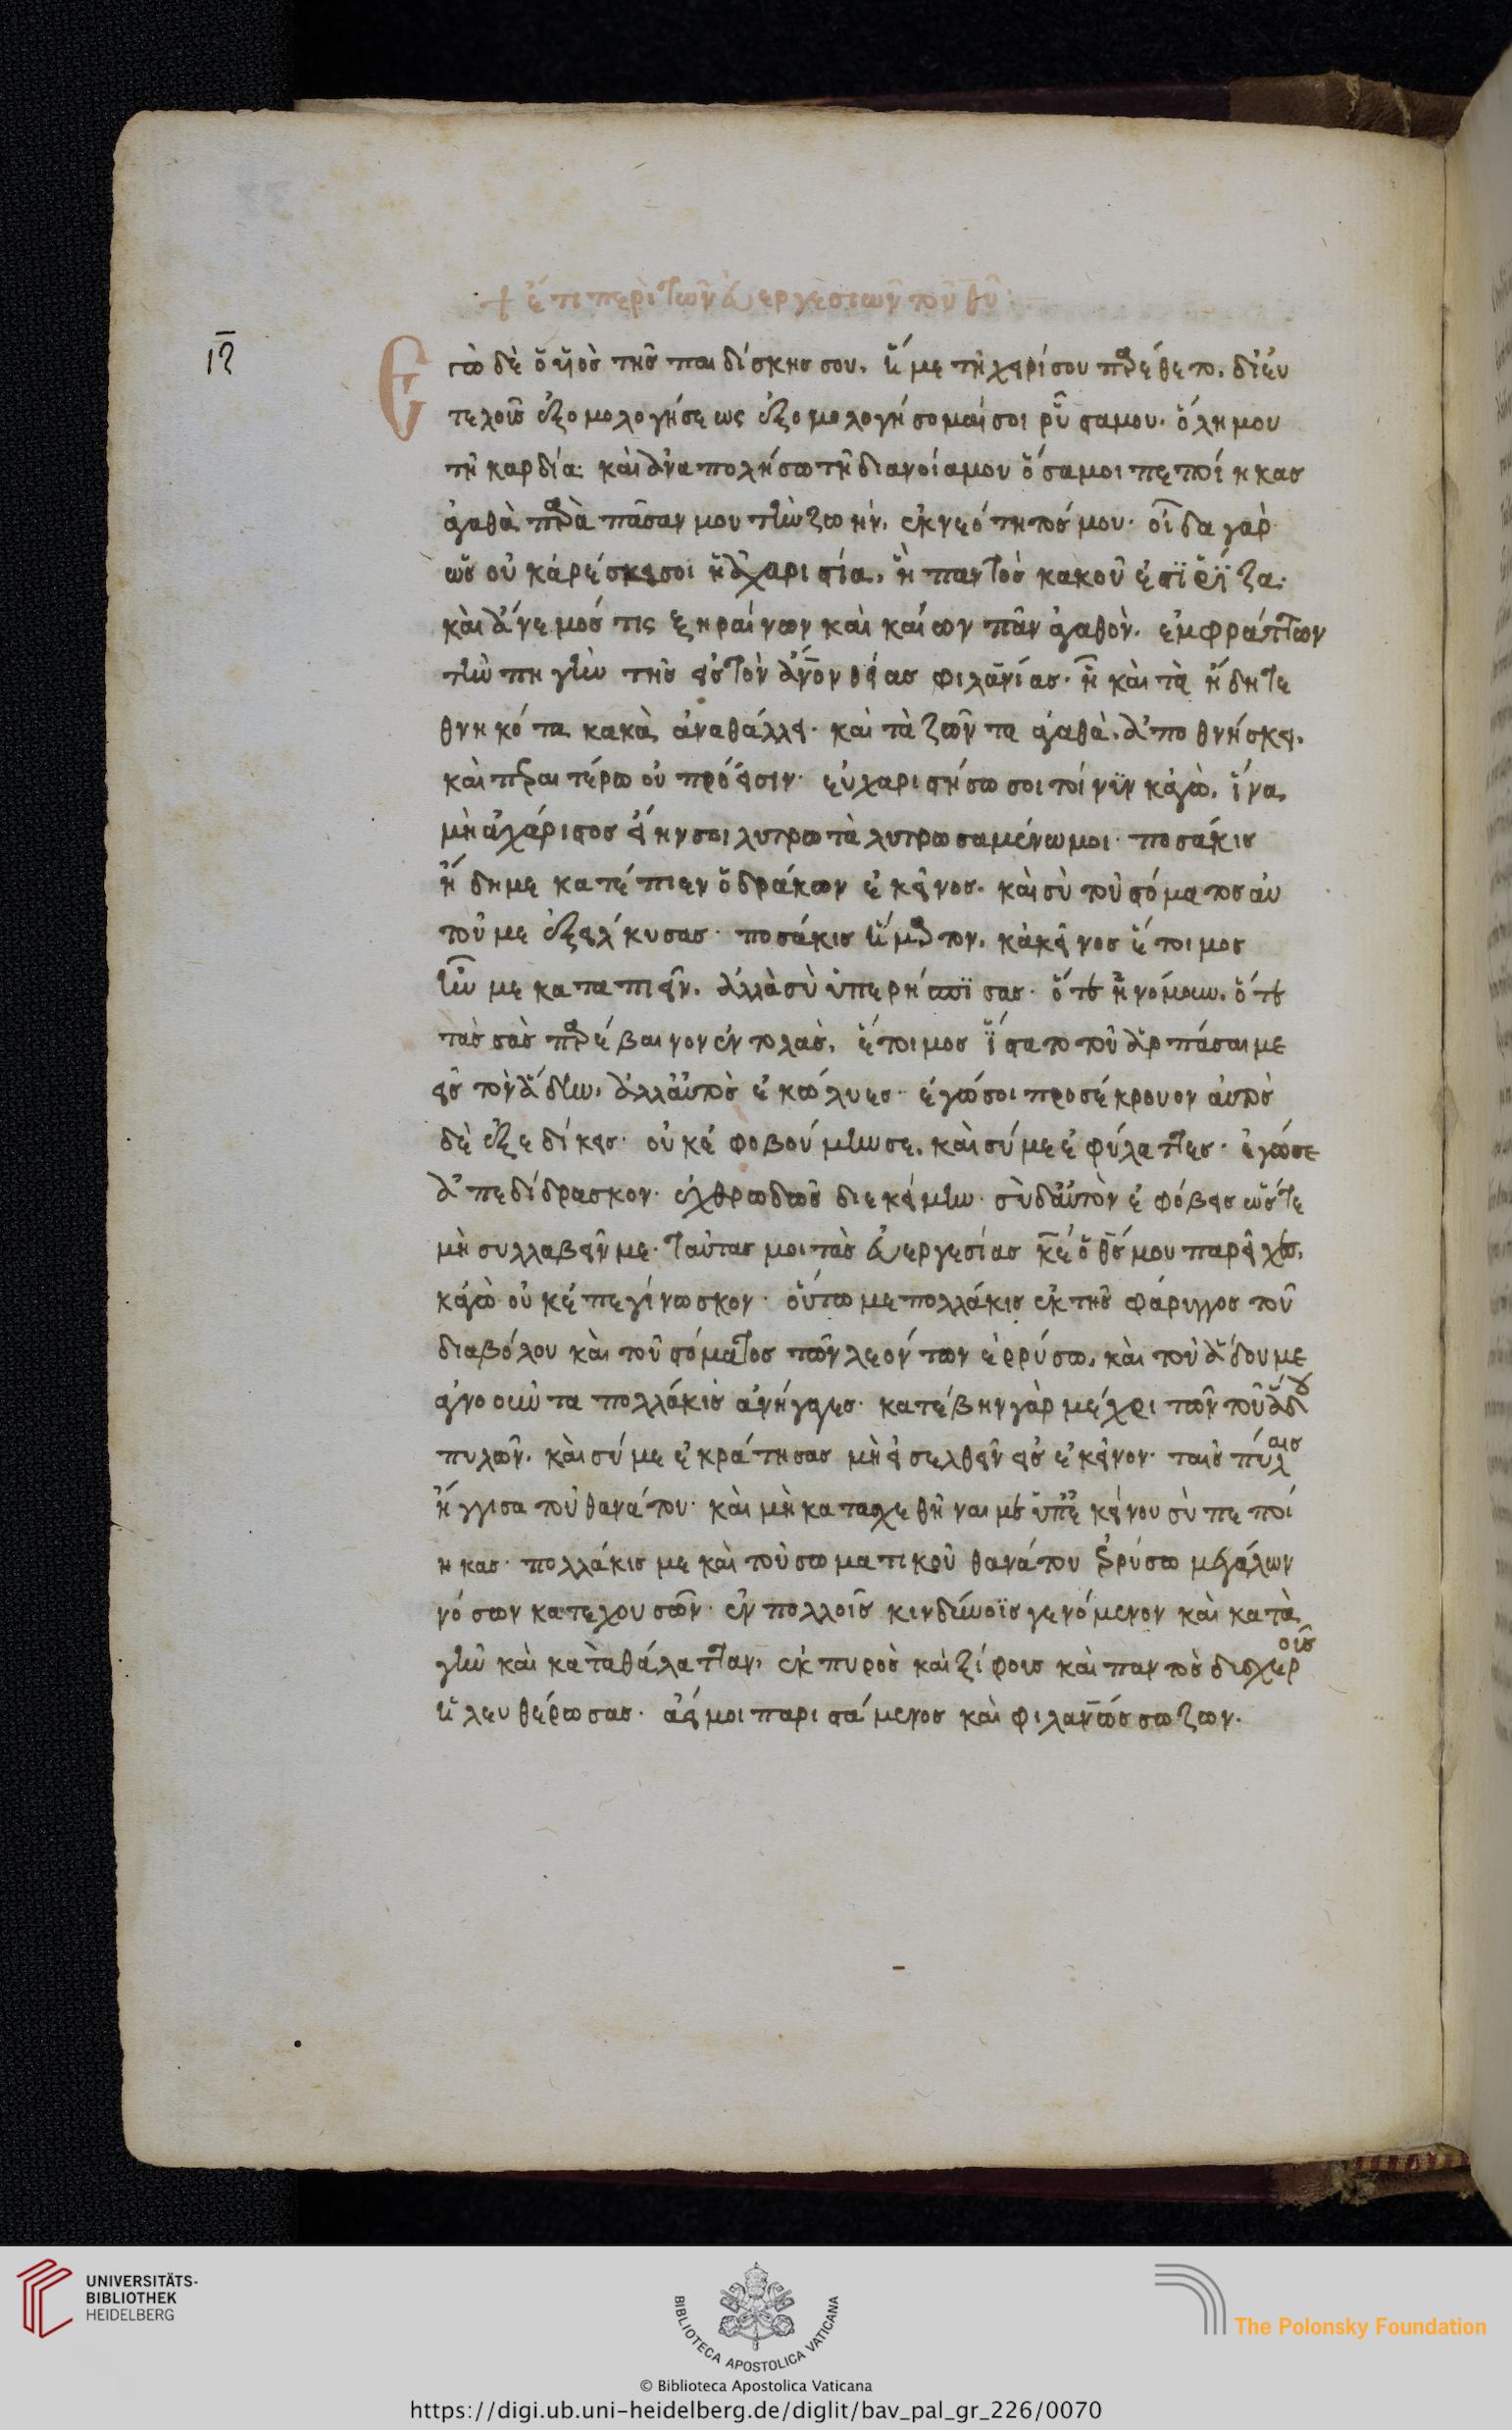 + ἔτι περὶ τῶν εὐεργεσιῶν τοῦ θυ
ιϛ
Ἐγὼ δὲ ὁ υἱὸς τῆς παιδίσκης σου, εἴ με τῇ χειρί σου προέθετο. διὲν
τελοῖς ἐξομολογήσεως ἐξομολογήσομαί σοι ῥῦσά μου. ὅλη μου
τῇ καρδία· καὶ ἀναπολήσω τῇ διανοία μου ὅσα μοι πεποίηκας
ἀγαθὰ παρὰ πᾶσαν μου τὴν ζωήν, ἐκ νεότητός μου· οἶδα γὰρ
ὡς οὐκ ἀρέσκει σοι ἡ ἀχαριστία, ἣ παντὸς κακοῦ ἐστὶ ῥίζα·
καὶ ἄνεμός τις ξηραίνων καὶ καίων πᾶν ἀγαθὸν. ἐμφράττων
τὴν πηγὴν τῆς εἰς τὸν ἄνον θείας φιλανίας· ᾗ καὶ τὰ ἤδη τε
θνηκότα κακὰ ἀναθάλλει· καὶ τὰ ζῶντα ἀγαθὰ, ἀποθνήσκει,
καὶ περαιτέρω οὐ πρόεισιν· εὐχαριστήσω σοι τοίνυν κἀγὼ, ἵνα
μὴ ἀχάριστος εἴην σοι λυτρωτὰ λυτρωσαμένω μοι· ποσάκις
ἤδη με κατέπιεν ὁ δράκων ἐκεῖνος. καὶ σὺ τοῦ στόματος αὐ
τοῦ με ἐξείλκυσας· ποσάκις ἥμαρτον, κἀκεῖνος ἕτοιμος
ἦν με καταπιεῖν. ἀλλὰ σὺ ὑπερήσπισας· ὅτε ἠνόμουν. ὅτε
τὰς σὰς παρέβαινον ἐντολὰς, ἕτοιμος ἵστατο τοῦ ἁρπάσαι με
εἰς τὸν ἅδην, ἀλλ' αὐτὸς ἐκώλυες· ἐγώ σοι προσέκρουον αὐτὸς
δὲ ἐξεδίκεις· οὐκ ἐφοβούμην σε, καὶ σύ με ἐφύλαττες· ἐγώ σε
ἀπεδίδρασκον· ἐχθρωδῶς διεκείμην· σὺ δ' αὐτὸν ἐφόβεις ὥστε
μὴ συλλαβεῖν με· ταύτας μοι τὰς εὐεργεσίας κε ὁ θς μου παρεῖχες,
κἀγὼ οὐκ ἐπεγίνωσκον· οὕτω με πολλάκις ἐκ τῆς φάρυγγος τοῦ
διαβόλου καὶ τοῦ στόματος τῶν λεόντων ἐρρύσω, καὶ τοῦ ἅδου με
ἀγνοοῦντα πολλάκις ἀνήγαγες· κατέβην γὰρ μέχρι τῶν τοῦ ἅδου
πυλῶν, καὶ σύ με ἐκράτησας μὴ εἰσελθεῖν εἰς ἐκεῖνον· ταῖς πύλαις
ἤγγισα τοῦ θανάτου· καὶ μὴ κατασχεθῆναί με ὑπ' ἐκείνου σὺ πεποί
ηκας· πολλάκις με καὶ τοῦ σωματικοῦ θανάτου ἐρρύσω μεγάλων
νόσων κατεχουσῶν· ἐν πολλοῖς κινδύνοις γενόμενον καὶ κατὰ
γῆν καὶ κατὰ θάλατταν, ἐκ πυρὸς καὶ ξίφους καὶ παντὸς δυσχεροῦς
ἠλευθέρωσας· ἀεί μοι παριστάμενος καὶ φιλανῶς σώζων.
UNIVERSITÄTS-
BIBLIOTHEK
HEIDELBERG
BIBLIOTECA APOSTOLICA VATICANA
© Biblioteca Apostolica Vaticana
The Polonsky Foundation
https://digi.ub.uni-heidelberg.de/diglit/bav_pal_gr_226/0070